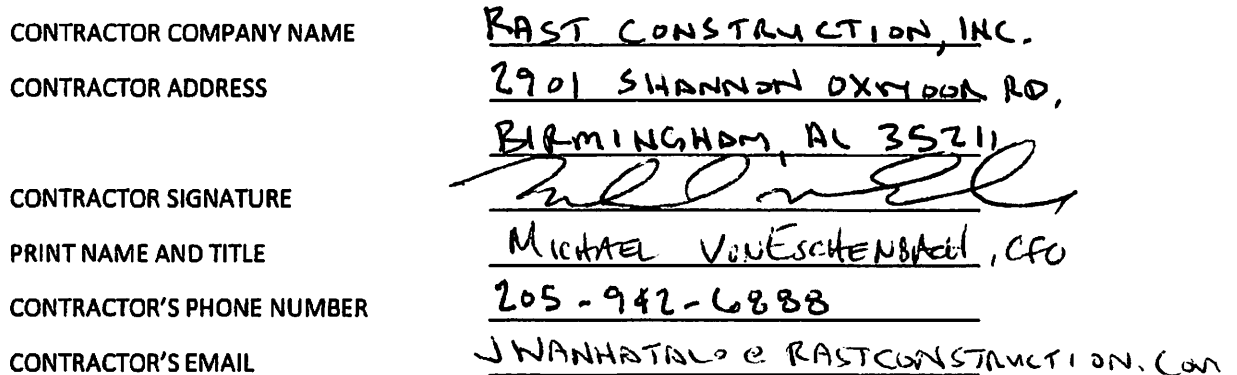 CONTRACTOR COMPANY NAME RAST CONSTRUCTION, INC.
CONTRACTOR ADDRESS 2901 SHANNON OXMOOR RD,
BIRMINGHAM, AL 35211
CONTRACTOR SIGNATURE
PRINT NAME AND TITLE MICHAEL VONESCHENBACH, CFO
CONTRACTOR'S PHONE NUMBER 205-942-6888
CONTRACTOR'S EMAIL JWANHATALO@RASTCONSTRUCTION.COM